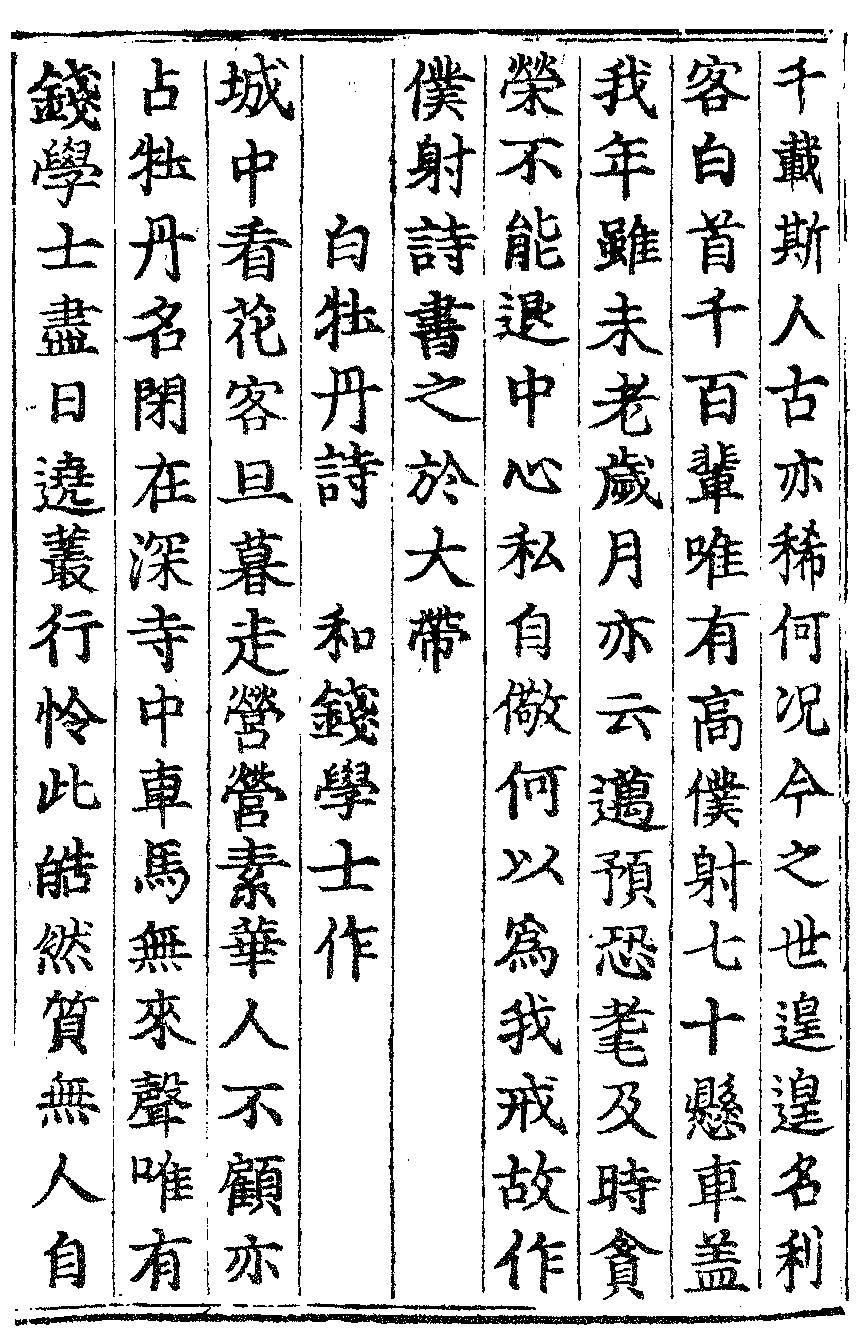 千載斯人古亦稀何况今之世遑遑名利
客白首千百輩唯有高僕射七十懸車盖
我年雖未老歲月亦云邁預恐耄及時貪
榮不能退中心私自儆何以爲我戒故作
僕射詩書之於大帶
白牡丹詩　和錢學士作
城中看花客旦暮走營營素華人不顧亦
占牡丹名閉在深寺中車馬無來聲唯有
錢學士盡日遶叢行怜此皓然質無人自